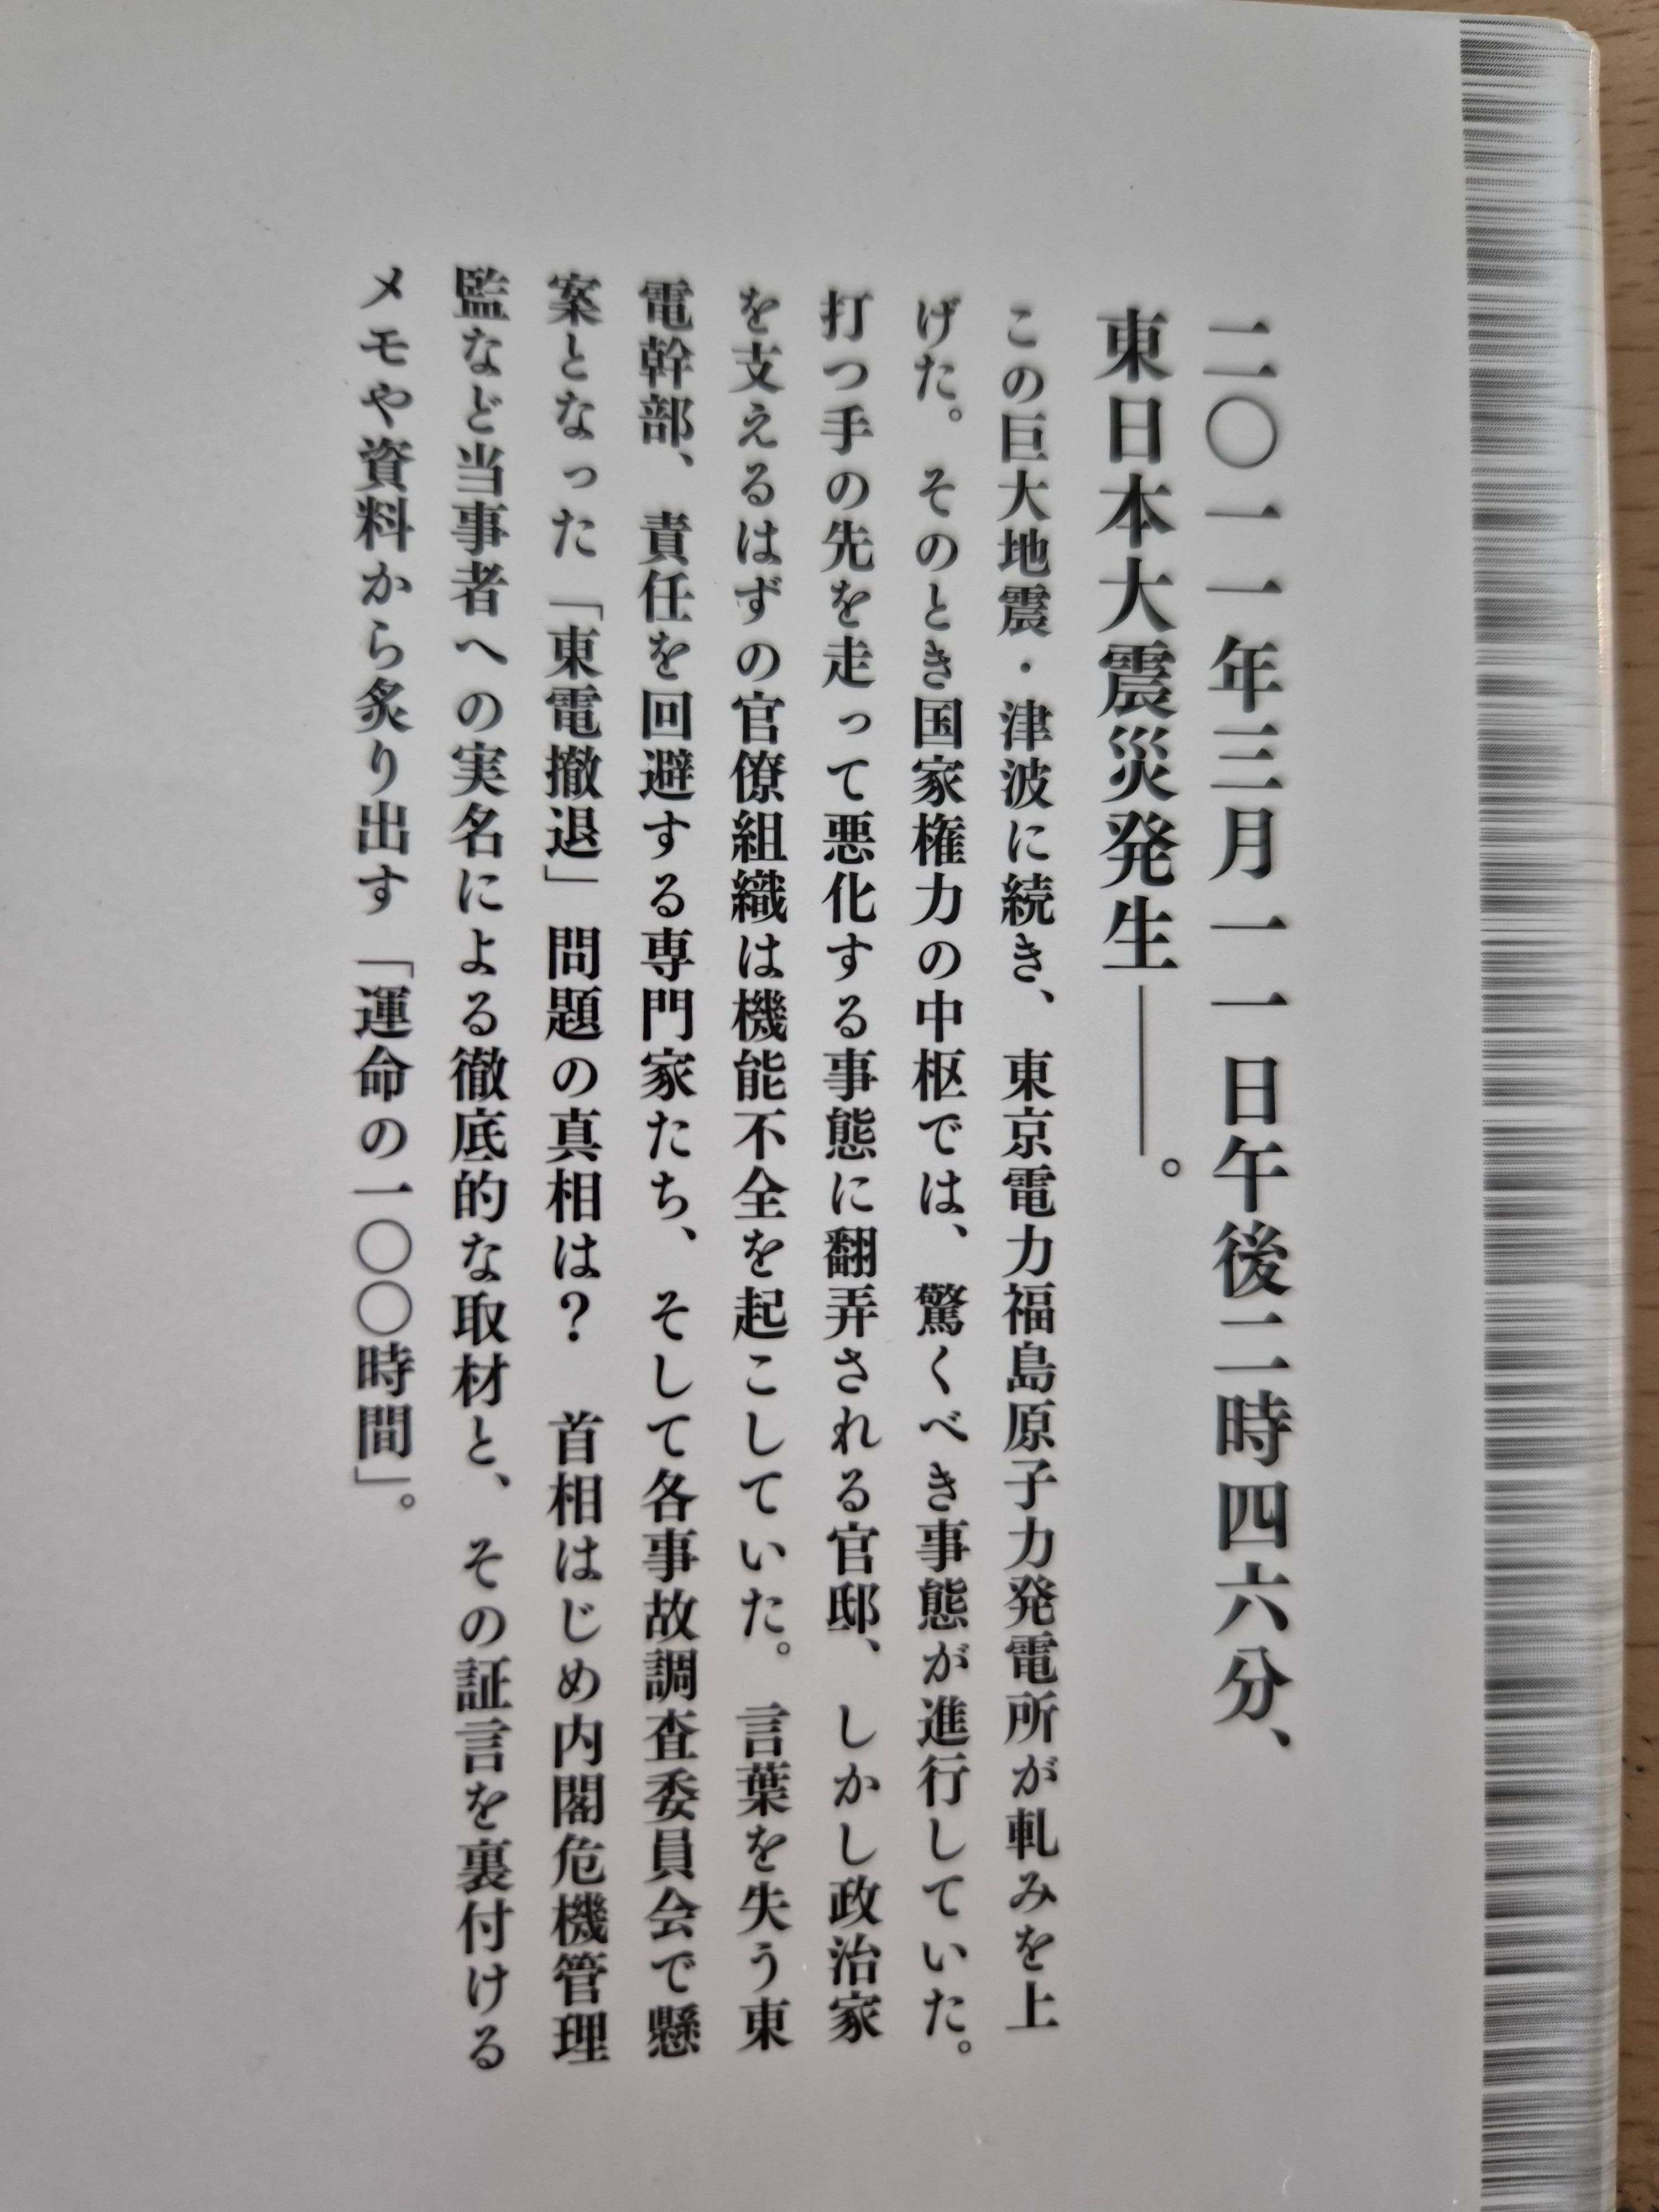 二〇一一年三月一一日午後二時四六分、
東日本大震災発生――。
この巨大地震・津波に続き、東京電力福島原子力発電所が軋みを上
げた。そのとき国家権力の中枢では、驚くべき事態が進行していた。
打つ手の先を走って悪化する事態に翻弄される官邸、しかし政治家
を支えるはずの官僚組織は機能不全を起こしていた。言葉を失う東
電幹部、責任を回避する専門家たち、そして各事故調査委員会で懸
案となった「東電撤退」問題の真相は？　首相はじめ内閣危機管理
監など当事者への実名による徹底的な取材と、その証言を裏付ける
メモや資料から炙り出す「運命の一〇〇時間」。